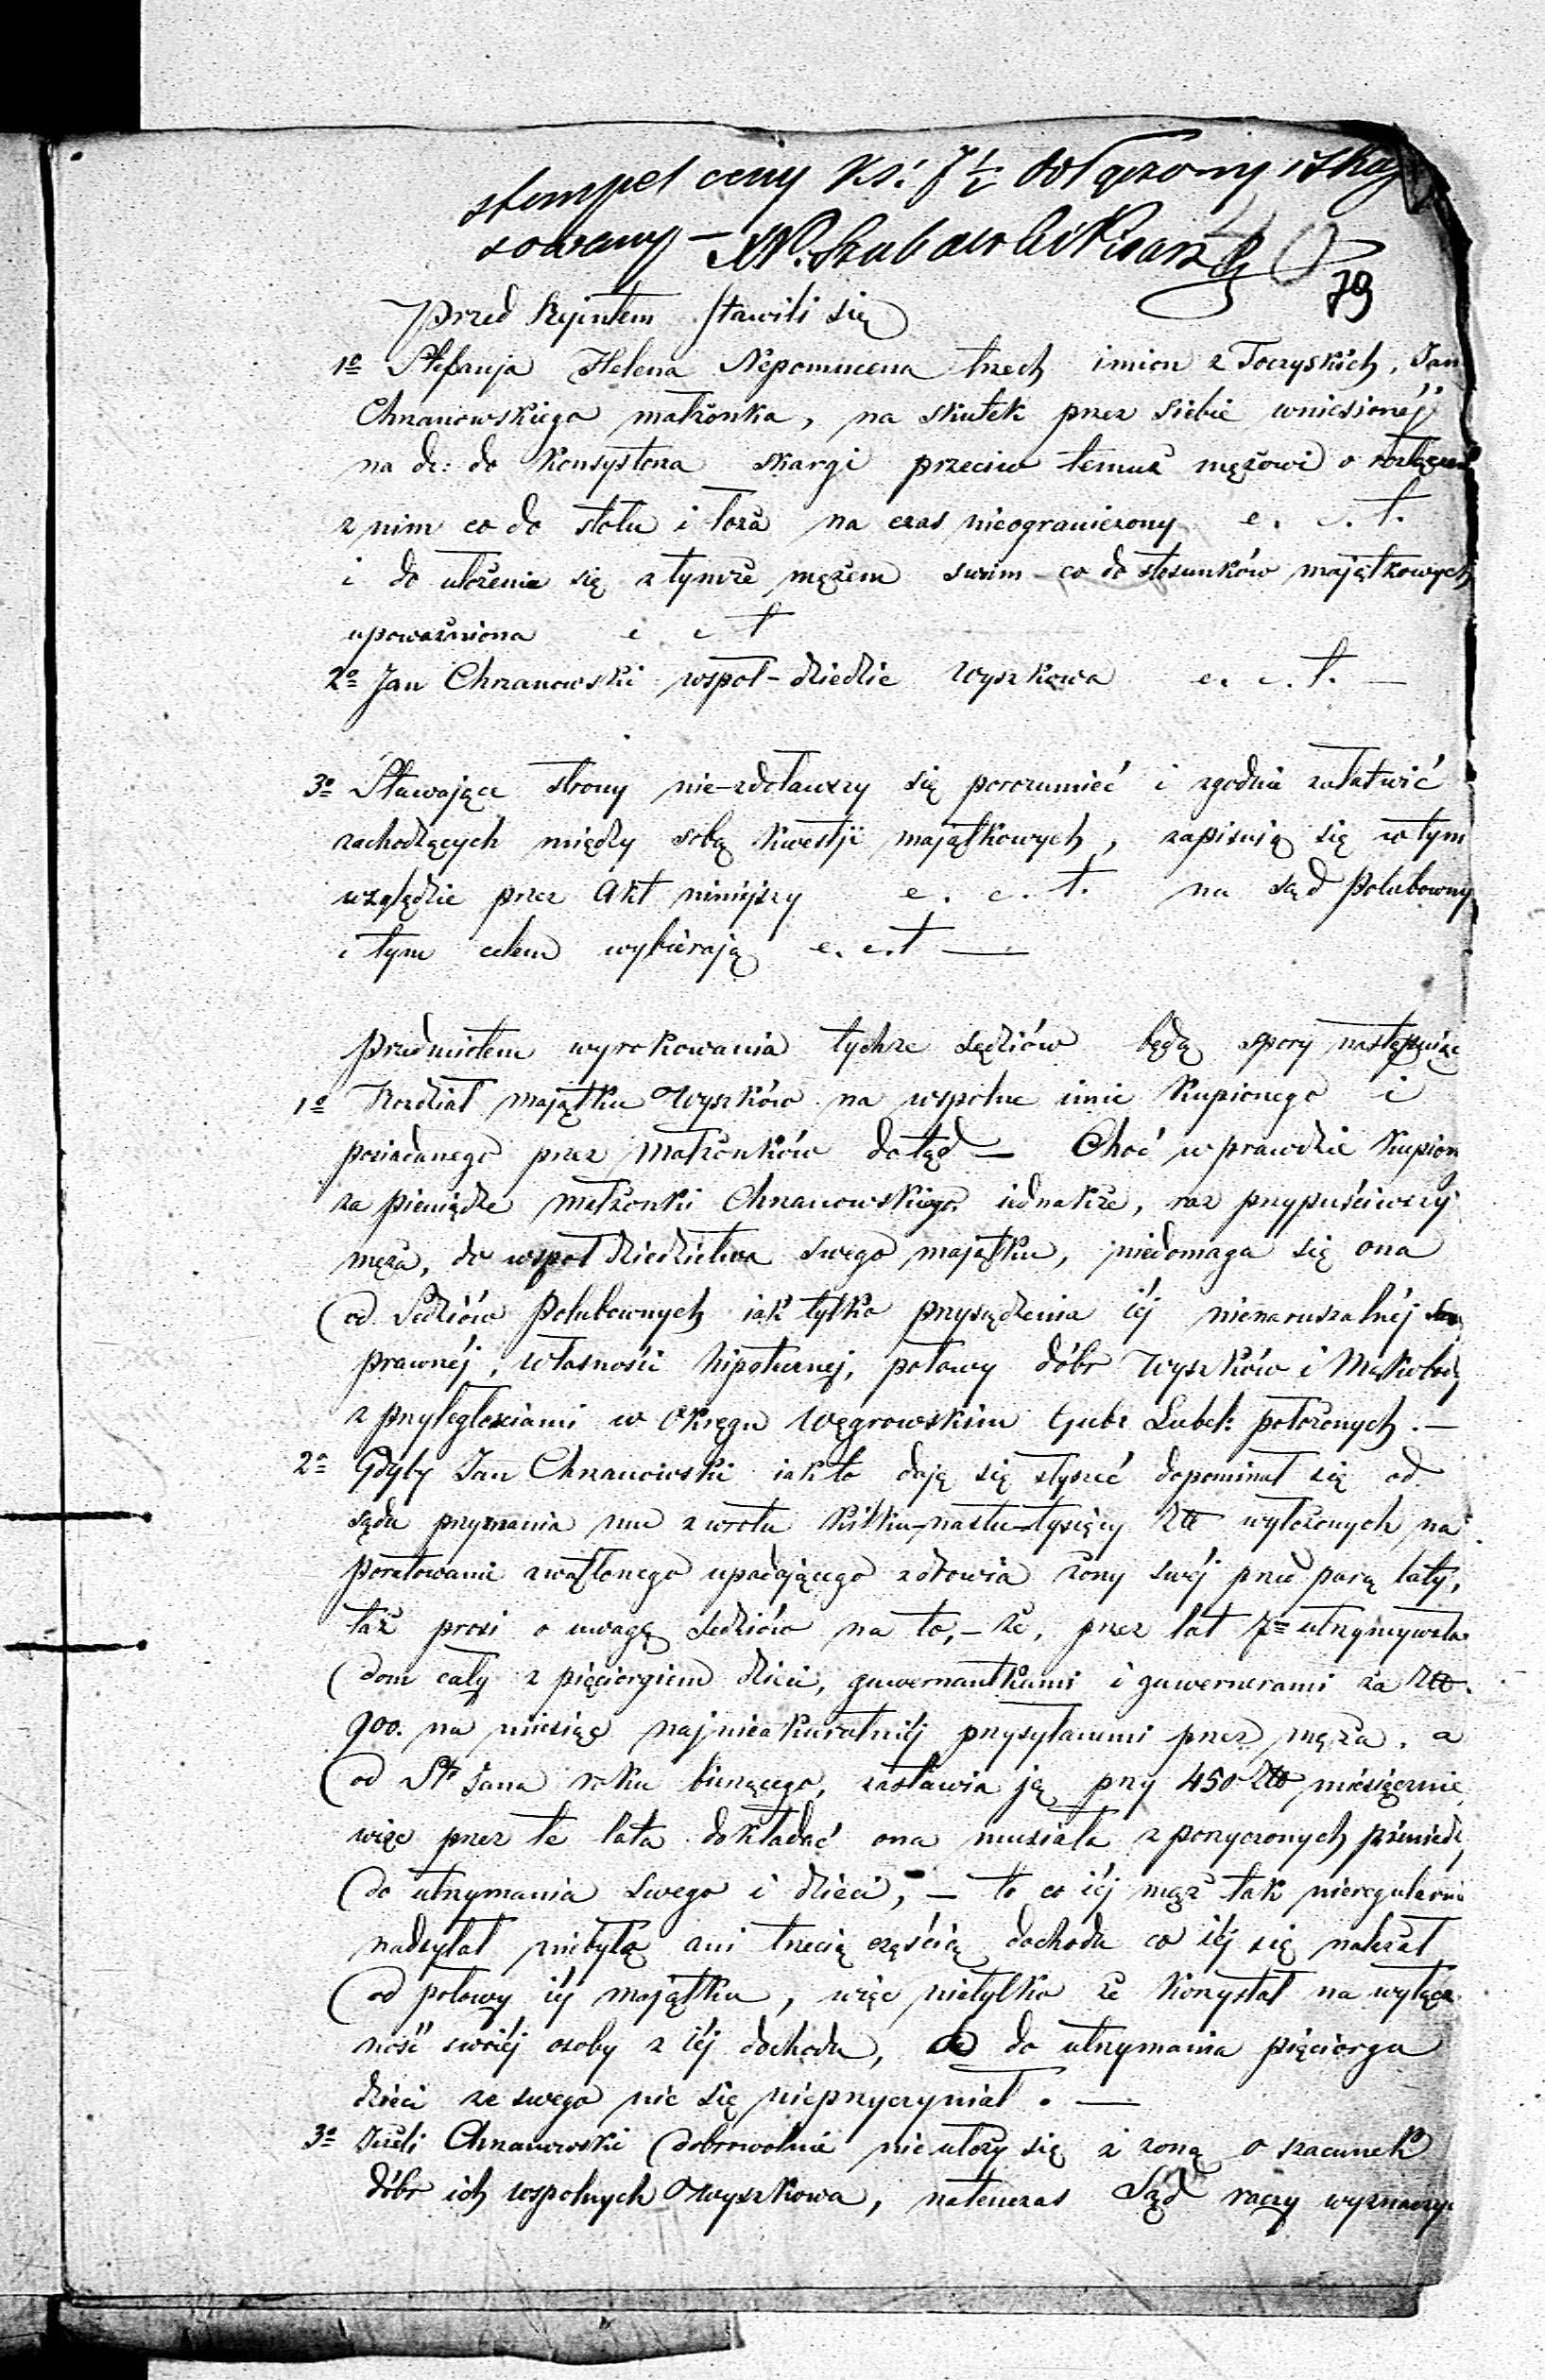 stempel ceny Ks: 7½ dołączony i ska
sowany –
79
Przed Rejentem stawili się
1º Stefanja Helena Nepomucena trzech imion z Toczyskich, Jan
Chrzanowskiego małżonka, na skutek przez siebie wniesionéj
na dr: do Konsystorza skargi przeciw temuż mężowi o rozłącze
z nim co do stołu i łoża na czas nieograniczony e. c. t.
i do ułożenia się z tymże mężem swoim co do stosunków majątkowych
upoważniona e c t
2º Jan Chrzanowski współ-dziedzic Wyszkowa e. c. t. —
3º Stawające strony nie-zdoławszy się porozumieć i zgodnie załatwić
zachodzących między sobą kwestji majątkowych, zapisują się w tym
względzie przez akt niniejszy e. c. t. na sąd polubowny
i tym celem wybierają e. c. t —
Przedmiotem wyrokowania tychże sędziów będą spory następujące
1º Rozdział majątku Wyszków na wspólne imie kupionego i
posiadanego przez małżonków dotąd — Choć w prawdzie kupion
za pieniądze małżonki Chrzanowskiego jednakże, raz przypuściwszy
męża, do współ dziedzictwa swego majątku, niedomaga się ona
od Sędziów Polubownych jak tylko przysądzenia iéj nienaruszalnéj
prawnéj, własności hipotecznej, połowy dóbr Wyszków i Mąkobody
z przyległościami w Okręgu Węgrowskim Gub: Lubels: położonych. —
2º Gdyby Jan Chrzanowski jak to daję się słyszeć dopominał się od
sądu przyznania mu zwrotu kilku-nastu-tysięcy Złł wyłożonych na
poratowanie zwątlonego upadającego zdrowia żony swéj przed parą laty,
taż prosi o uwagę sędziów na to, – że, przez lat 7m utrzymywała
dom cały z pięciorgiem dzieci, guwernantkami i guwernerami za Złł.
900. na miesiąc najnieakuratniéj przysyłanemi przez męża, a
od Sto Jana roku bieżącego, zostawia ją przy 450 Złł miesięcznie
więc przez te lata dokładać ona musiała z pożyczonych pieniędz
do utrzymania swego i dzieci, – to co iéj mąż tak nieregularnie
nadsyłał niebyło ani trzecią częścią dochodu co iéj się należał
od połowy iéj majątku, więc nietylko że korzystał na wyłącz
ność swoiéj osoby z iéj dochodu, do utrzymania pięciorga
dzieci ze swego nic się nieprzyczyniał. —
3º Jeżeli Chrzanowski dobrowolnie nie ułoży się z żoną o szacunek
dóbr ich wspólnych Wyszkowa, natenczas Sąd raczy wyznaczyć